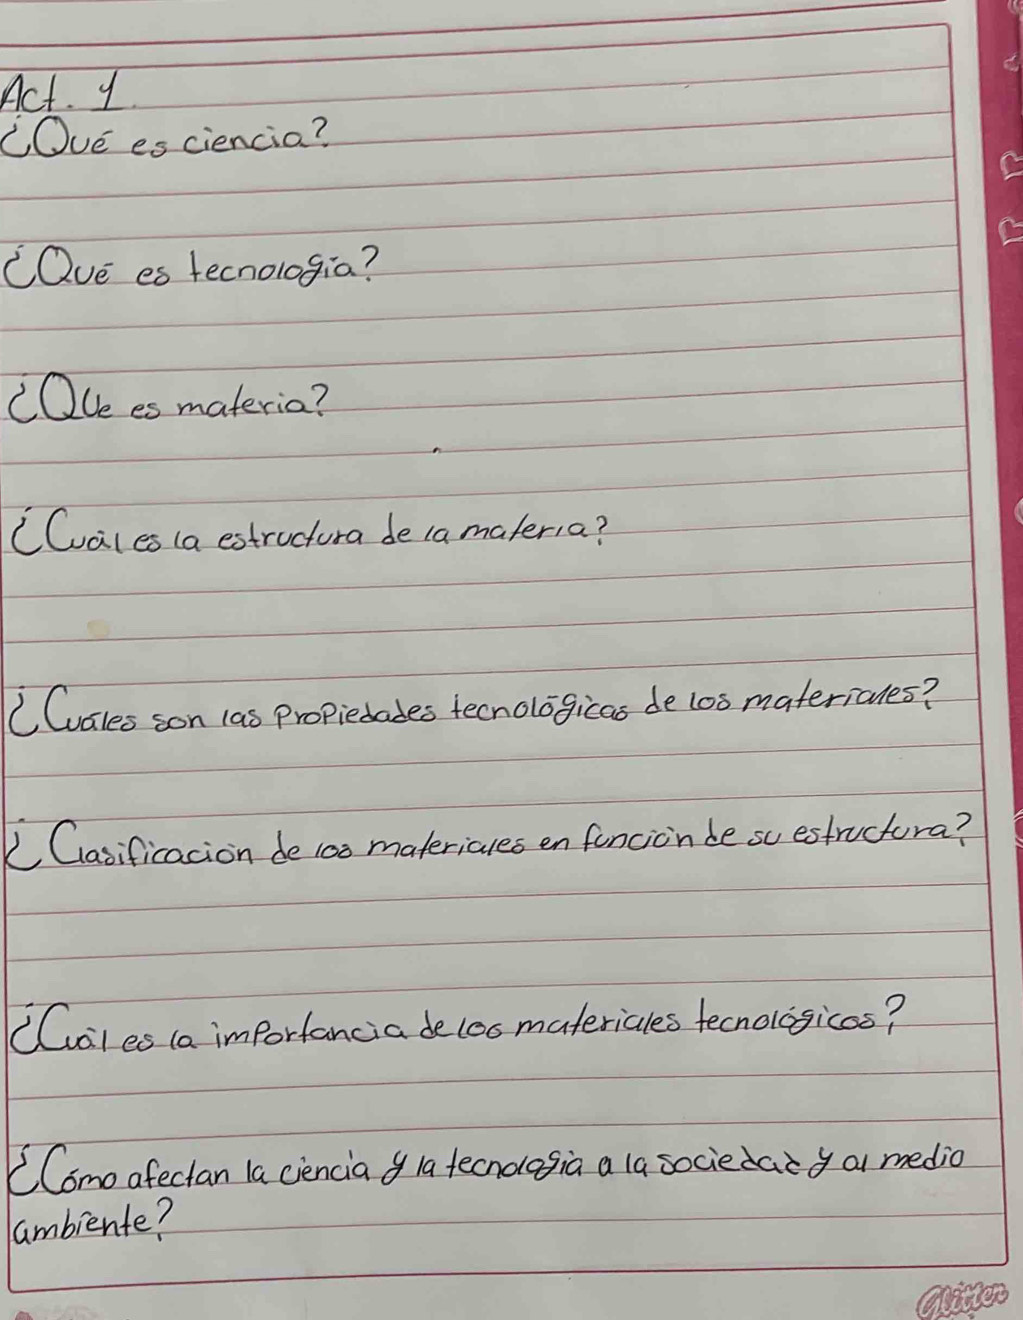 Act. 1.
¿Qué es ciencia?
¿Qué es tecnología?
¿Que es materia?
¿Cuál es la estructura de la materia?
¿Cuáles son las Propiedades tecnológicas de los materiales?
¿Clasificación de los materiales en función de su estructura?
¿Cuál es la importancia de los materiales tecnológicos?
¿Cómo afectan la ciencia y la tecnología a la sociedad y al medio
ambiente?
Glitter